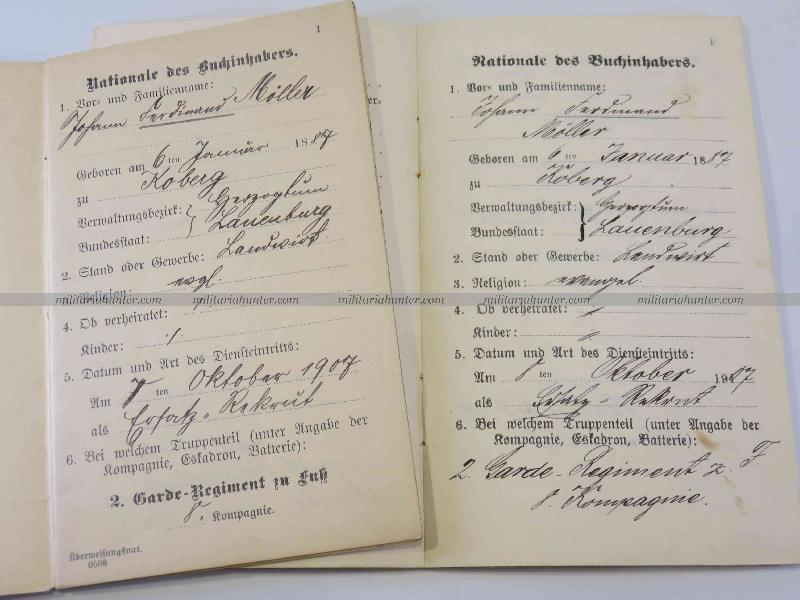 1
Nationale des Buchinhabers.
1. Vor- und Familienname:
Johann Ferdinand Möller
Geboren am 6 ten Januar 1887
zu Koberg
Verwaltungsbezirk: Herzogtum
Bundesstaat: Lauenburg
2. Stand oder Gewerbe: Landwirt
evgl
Religion:
4. Ob verheiratet: /
Kinder: /
5. Datum und Art des Diensteintritts:
Am ten Oktober 1907
als Ersatz-Rekrut
6. Bei welchem Truppenteil (unter Angabe der
Kompagnie, Eskadron, Batterie):
2. Garde-Regiment zu Fuß
8. Kompagnie.
Überweisungsnat.
0508
1
Nationale des Buchinhabers.
1. Vor- und Familienname:
Johann Ferdinand
Möller
Geboren am 6 ten Januar 1887
zu Koberg
Verwaltungsbezirk: Herzogtum
Bundesstaat: Lauenburg
2. Stand oder Gewerbe: Landwirt
3. Religion: evangel.
4. Ob verheiratet: /
Kinder: /
5. Datum und Art des Diensteintritts:
Am ten Oktober 1907
als Ersatz-Rekrut
6. Bei welchem Truppenteil (unter Angabe der
Kompagnie, Eskadron, Batterie):
2. Garde-Regiment z. F.
8. Kompagnie.
militariahunter.com militariahunter.com militariahunter.com militariahunter.com militariahunter.com